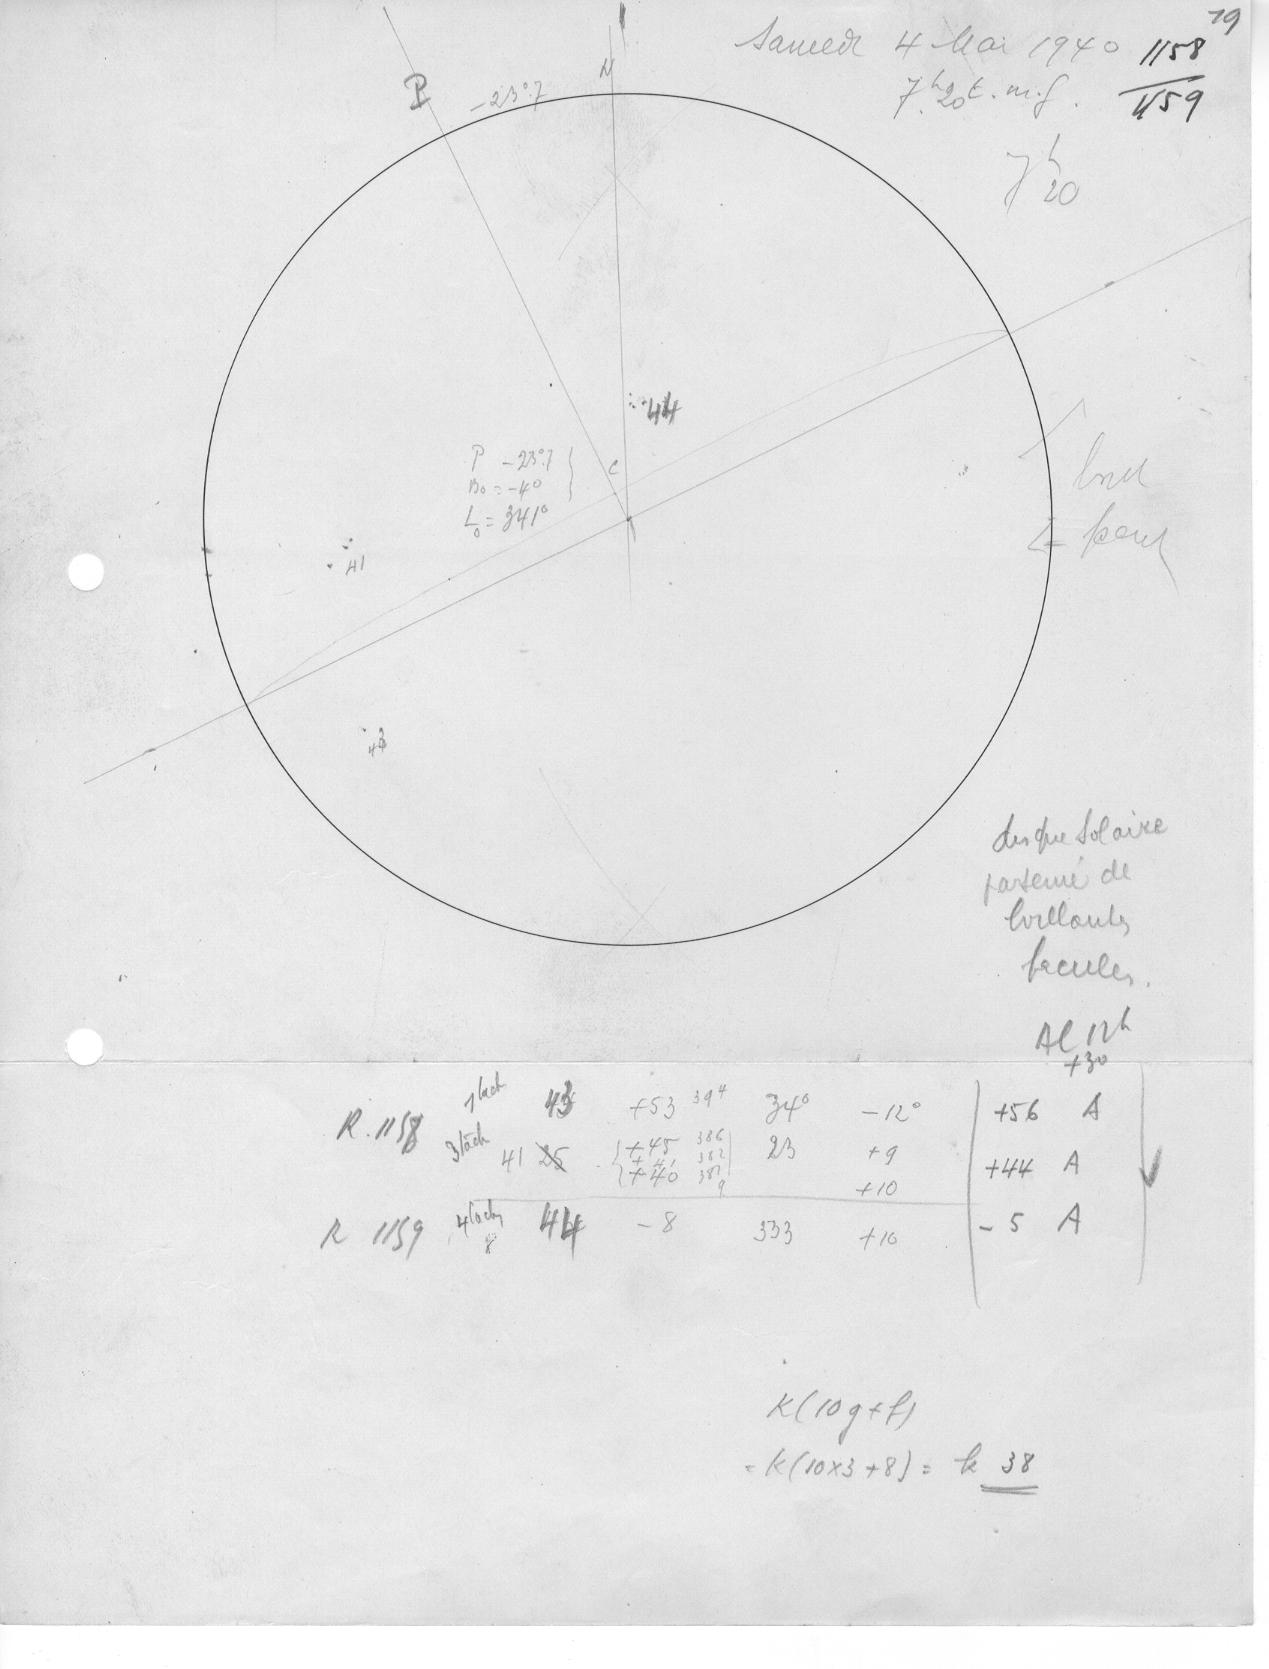 79
Samedi 4 Mai 1940 1158
7h.20 t.m.f. 1159
7h20
P -23°.7 N
44
P -23°.7
B0 = -4°
L0 = 341°
C
41
43
disque Solaire
parsemé de
brillantes
facules.
A l 12h
+30
R. 1158 1 tach 43 +53 394 34° -12° +56 A
3 tach 41 25 +45 386 23 +9 +44 A
+41 382
+40 381 +10
9
R 1159 4 tach 44 -8 333 +10 -5 A
8
K(10g+f)
= K(10x3+8) = k 38